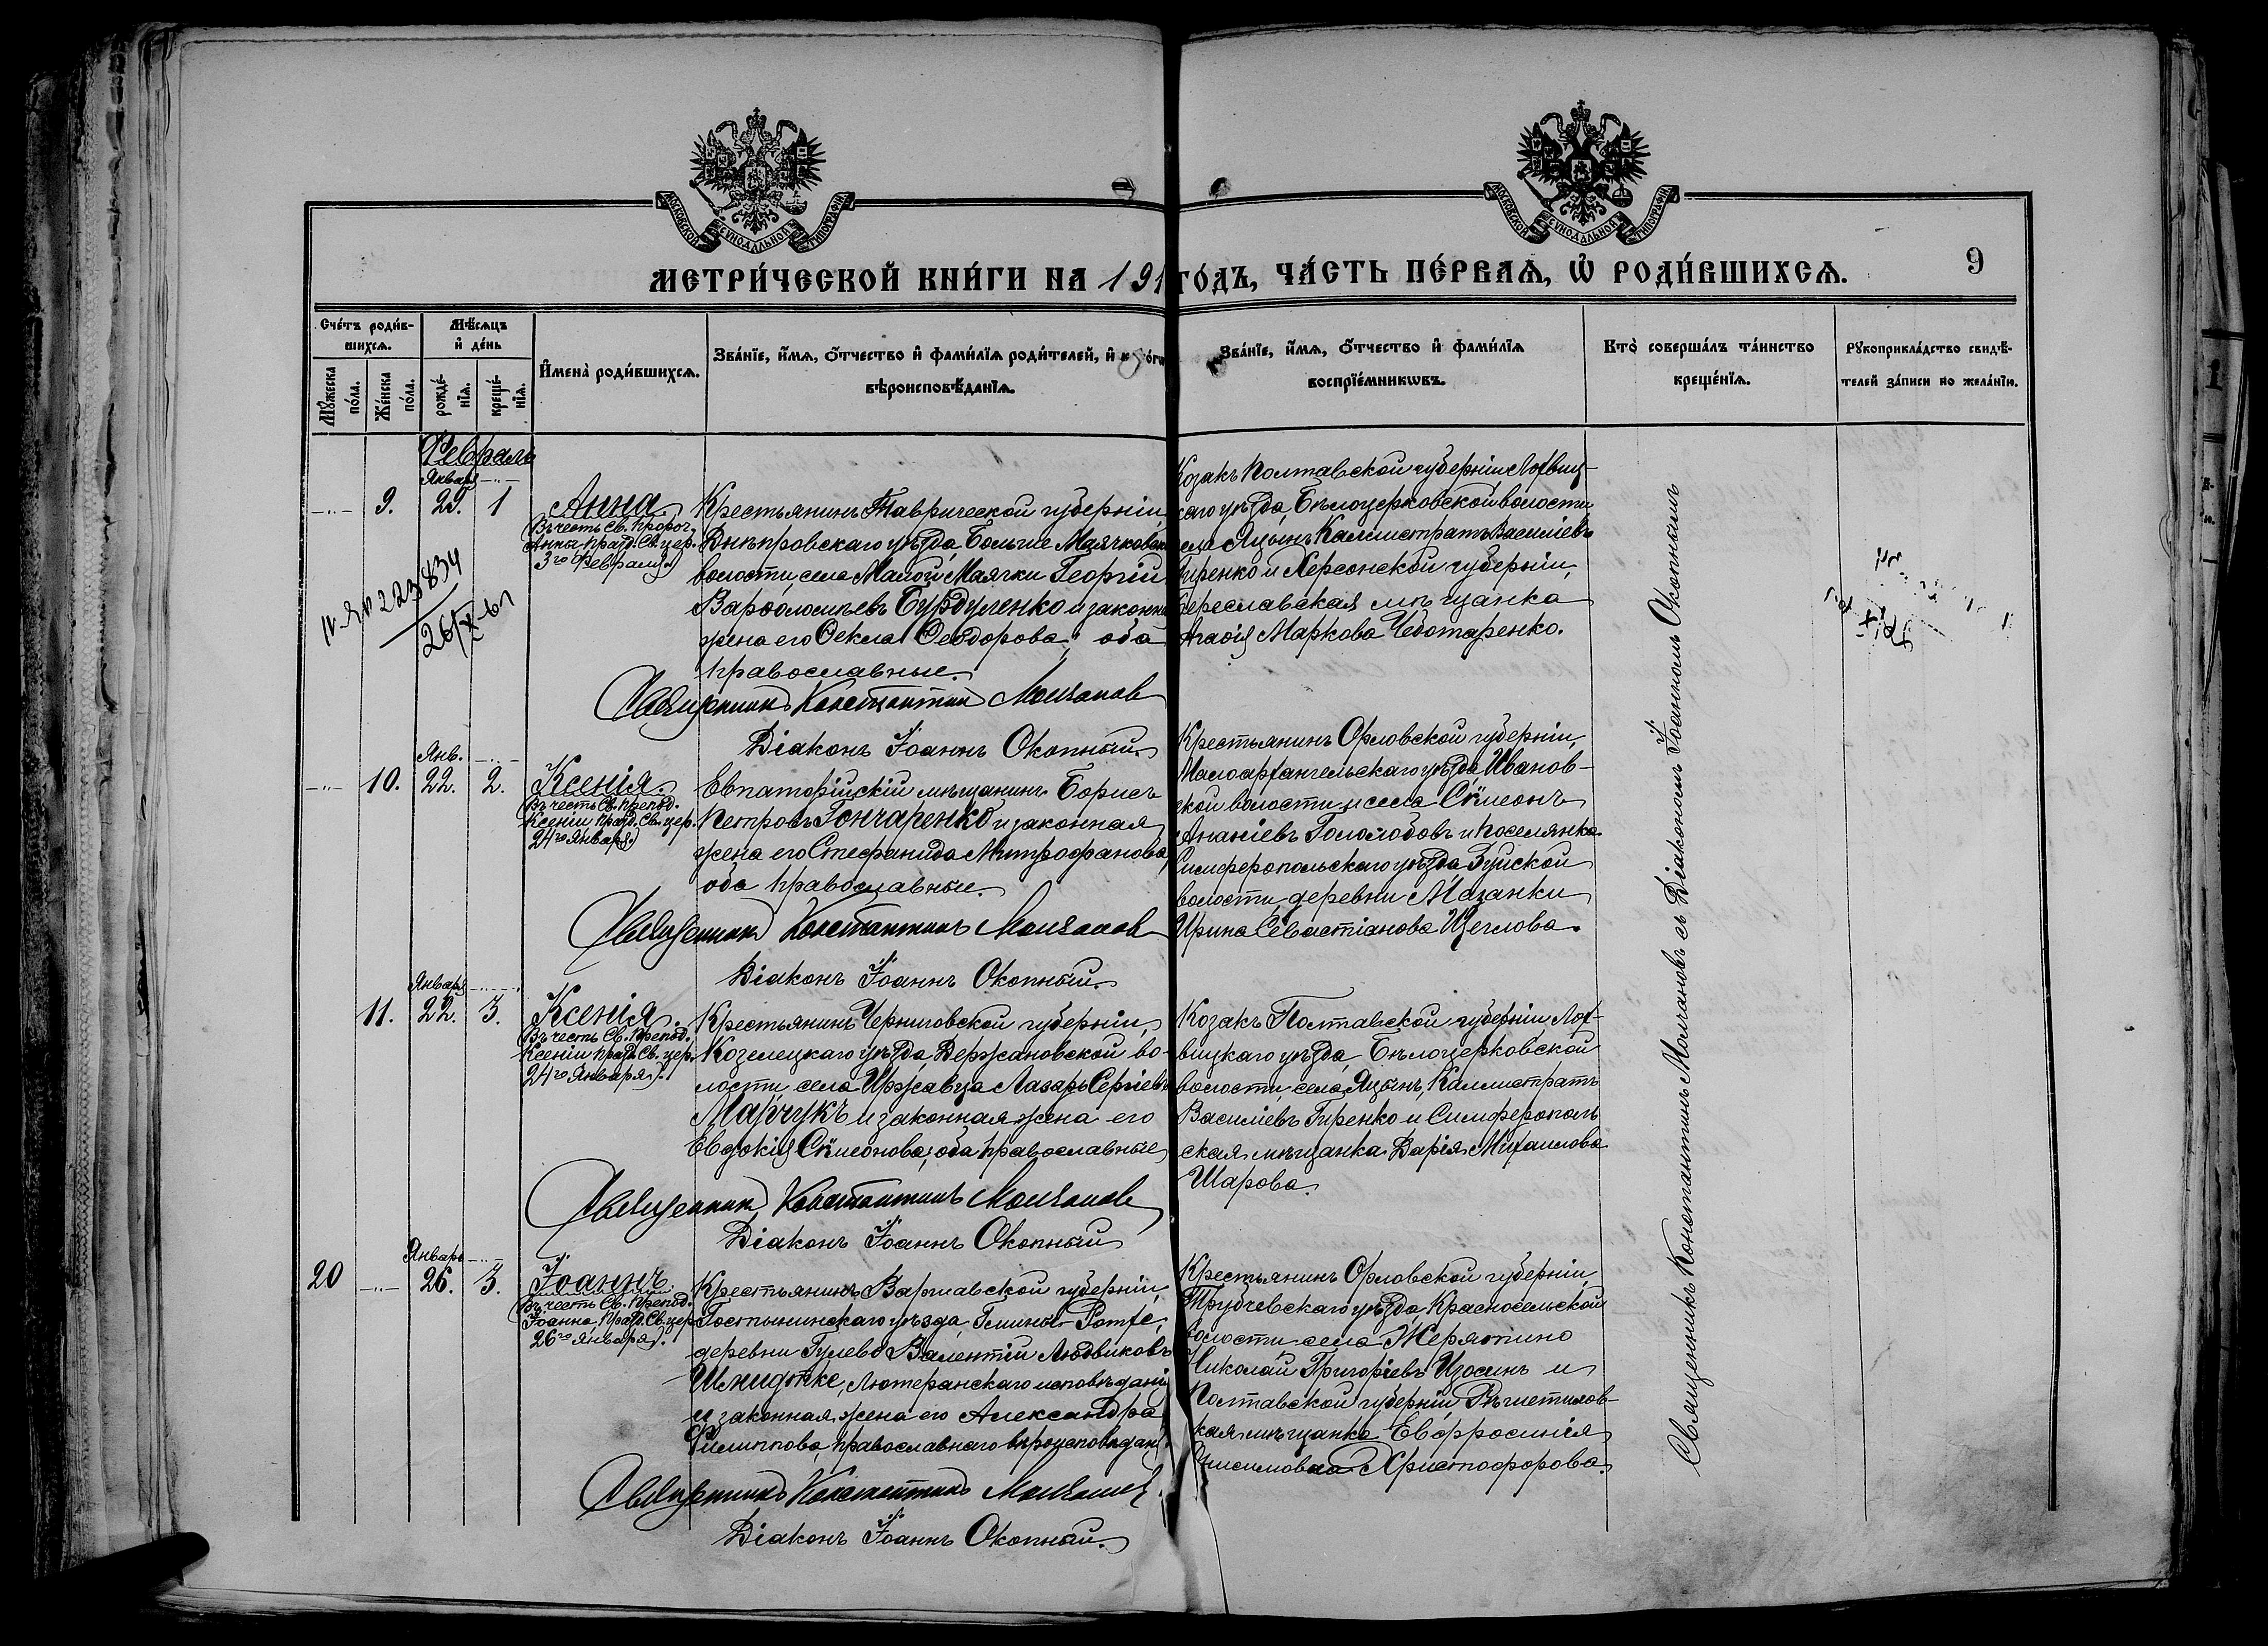 МОСКОВСКОЙ СѴНОДАЛЬНОЙ ТИПОГРАФІИ
МОСКОВСКОЙ СѴНОДАЛЬНОЙ ТИПОГРАФІИ
МЕТРИ́ЧЕСКОЙ КНИ́ГИ НА 191 ГО́ДЪ, ЧА́СТЬ ПЕ́РВАѦ, Ѡ҆ РОДИ́ВШИХСѦ.
9
Сче́тъ роди́в-
шихсѧ.
Мꙋ́жеска
по́ла.
Же́нска
по́ла.
Мѣ́сѧцъ
и҆ де́нь
рожде́-
нїѧ.
креще́-
нїѧ.
И҆мена̀ роди́вшихсѧ.
Зва́нїе, и҆́мѧ, ѻ҆́тчество и҆ фами́лїѧ роди́телей, и҆
вѣроисповѣ́данїѧ.
Зва́нїе, и҆́мѧ, ѻ҆́тчество и҆ фами́лїѧ
воспрїе́мникѡвъ.
Кто̀ соверша́лъ та́инство
креще́нїѧ.
Рꙋкоприкла́дство свидѣ́-
телей за́писи по жела́нїю.
Февраль
Января
9. 29. 1
Анна.
Въ честь Св. Пророч.
Анны празд. Св. цер.
3го Февраля)
Крестьянинъ Таврической губерніи,
Днѣпровскаго уѣзда, Больше Маячковской
волости, села Малой Маячки Георгій
Варѳоломѣевъ Бурдуженко и законная
жена его Ѳекла Ѳеодорова, оба
православные.
Священникъ Константинъ Молчановъ
Діаконъ Іоаннъ Окопный.
Козакъ Полтавской губерніи Лохвиц-
каго уѣзда, Бѣлоцерковской волости
села Яцынъ Каллистратъ Василіевъ
Гиренко и Херсонской губерніи,
Береславская мѣщанка
Агаѳія Маркова Чеботаренко.
223834
26/X-61
Янв.
10. 22. 2.
Ксенія.
Въ честь Св. Препод.
Ксеніи празд. Св. цер.
24го Января)
Евпаторійскій мѣщанинъ Борисъ
Петровъ Гончаренко и законная
жена его Стефанида Митрофанова,
оба православные.
Священникъ Константинъ Молчановъ
Діаконъ Іоаннъ Окопный.
Крестьянинъ Орловской губерніи,
Малоархангельскаго уѣзда, Иванов-
ской волости и села Сѵмеонъ
Ананіевъ Гололобовъ и поселянка
Симферопольскаго уѣзда Зуйской
волости, деревни Мазанки
Ирина Севастіанова Щеглова.
Января
11. 22. 3.
Ксенія.
Въ честь Св. Препод.
Ксеніи празд. Св. цер.
24го Января).
Крестьянинъ Черниговской губерніи,
Козелецкаго уѣзда, Держановской во-
лости, села Иржавца Лазарь Сергіевъ
Марчукъ и законная жена его
Евдокія Сѵмеонова; оба православные
Священникъ Константинъ Молчановъ
Діаконъ Іоаннъ Окопный
Козакъ Полтавской губерніи Лох-
вицкаго уѣзда, Бѣлоцерковской
волости, села Яцынъ, Каллистратъ
Василіевъ Гиренко и Симферополь
ская мѣщанка Дарія Михаилова
Шарова.
Январь
20 26. 3.
Іоаннъ.
Въ честь Св. Препод.
Іоанна, празд. Св. цер.
26го января).
Крестьянинъ Варшавской губерніи,
Гостынинскаго уѣзда, Гмины Ратае,
деревни Гулево Валентій Людвиковъ
Шмидтке, Лютеранскаго исповѣданія
и законная жена его Александра
Филиппова, православнаго вѣроисповѣданія.
Священникъ Константинъ Молчановъ
Діаконъ Іоаннъ Окопный.
Крестьянинъ Орловской губерніи,
Трубчевскаго уѣзда, Красносельской
волости села Жерятино
Николай Григоріевъ Изосинъ и
Полтавской губерніи, Рѣшетилов-
ская мѣщанка Евфросинія
Онисимова Христофорова.
Священникъ Константинъ Молчановъ съ Діакономъ Іоанномъ Окопнымъ